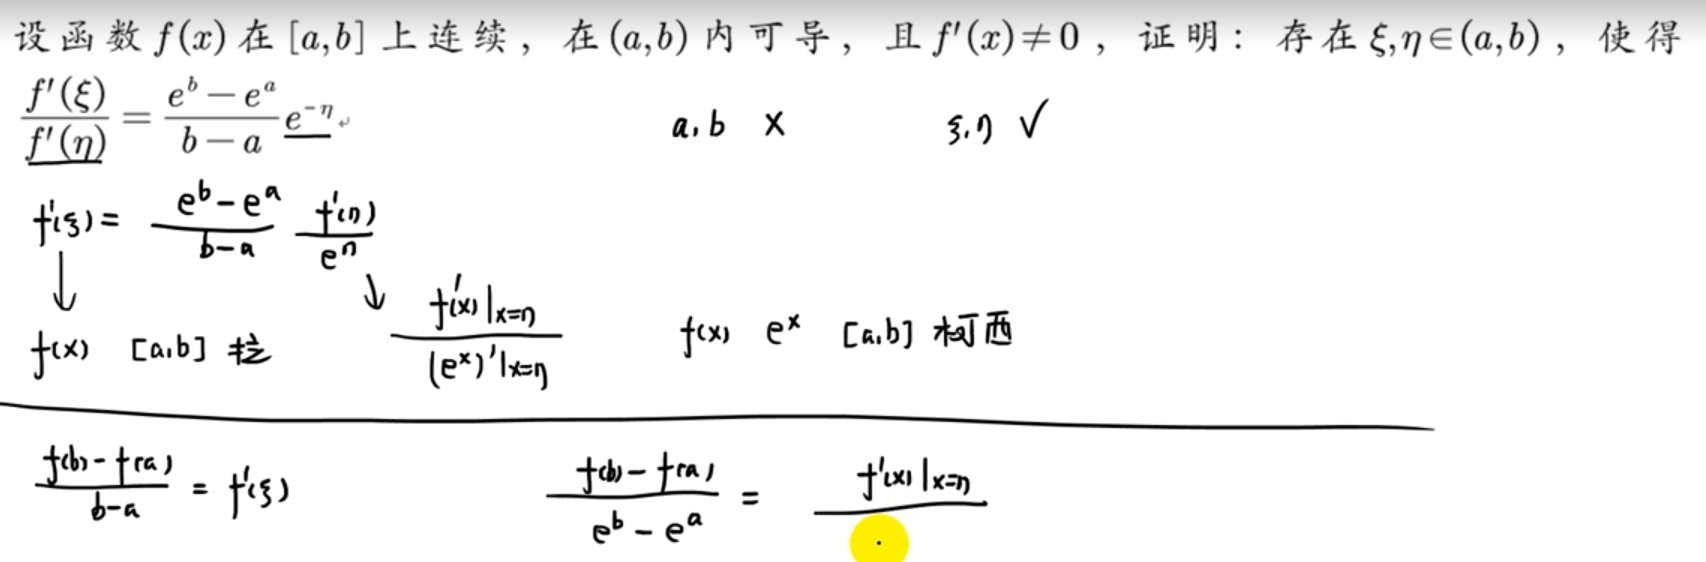 设函数 f(x) 在 [a,b] 上连续，在 (a,b) 内可导，且 f′(x)≠0，证明：存在 ξ,η∈(a,b)，使得
f′(ξ)/f′(η) = (e^b − e^a)/(b − a) e^{−η}
a,b × ξ,η ✓
f′(ξ) = (e^b − e^a)/(b−a) f′(η)/e^η
↓ ↘ f′(x)|x=η / (e^x)′|x=η
f(x) [a,b] 拉 f(x) e^x [a,b] 柯西
(f(b) − f(a))/(b−a) = f′(ξ) (f(b) − f(a))/(e^b − e^a) = f′(x)|x=η